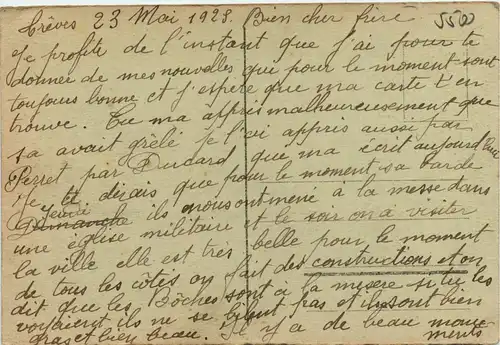 Trèves 23 Mai 1923. Bien cher frère 5500
Je profite de l'instant que j'ai pour te
donner de mes nouvelles qui pour le moment sont
toujours bonne et j'espère que ma carte t'en
trouve. Tu ma appris malheureusement que
sa avait grêlé je l'ai appris aussi par
Perret par Ducard que ma écrit aujourd'hui
Je te disais que pour le moment sa barde
Jeudi
Dimanche ils nous ont mené à la messe dans
une église militaire et le soir on a visiter
la ville elle est très belle pour le moment
de tous les côtés on fait des constructions et on
dit que les Boches sont à la misère si tu les
voyaient ils ne se pas et ils sont bien
gras et bien beau. Il y a de beau monu
ments